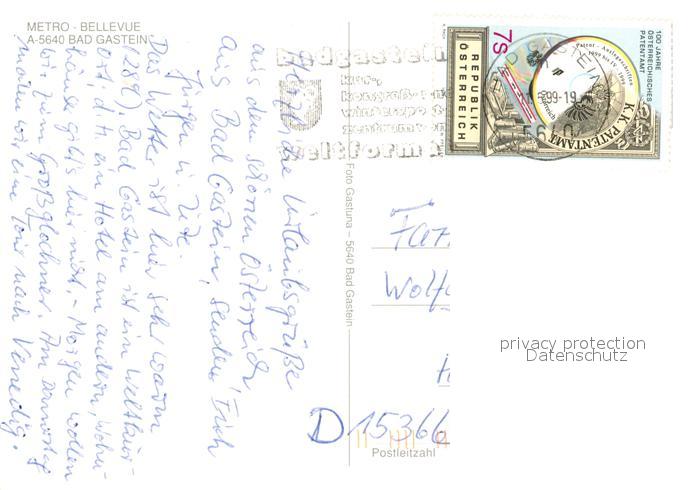 METRO - BELLEVUE
A-5640 BAD GASTEIN
Herzliche Urlaubsgrüße
aus dem schönen Österreich
aus Bad Gastein, senden Euch
Jürgen u. Ute.
Das Wetter ist hier sehr warm
(28°). Bad Gastein ist ein Weltkur-
ort, d.h. ein Hotel am andern, Wohn-
häuser gibt's hier nicht. - Morgen wollen
wir zum Großglockner. Am Donnerstag
machen wir eine Tour nach Venedig.
Foto Gastuna – 5640 Bad Gastein
badgastein
kur-,
kongreß-
wintersport-
zentrum
weltform
100 JAHRE
ÖSTERREICHISCHES
PATENTAMT
Patent - Ausleseschriften
1899 bis 1999
K.K. PATENTAMT
REPUBLIK
ÖSTERREICH
7S
99-19
5640
Fam.
Wolf
D 15366
Postleitzahl
privacy protection
Datenschutz